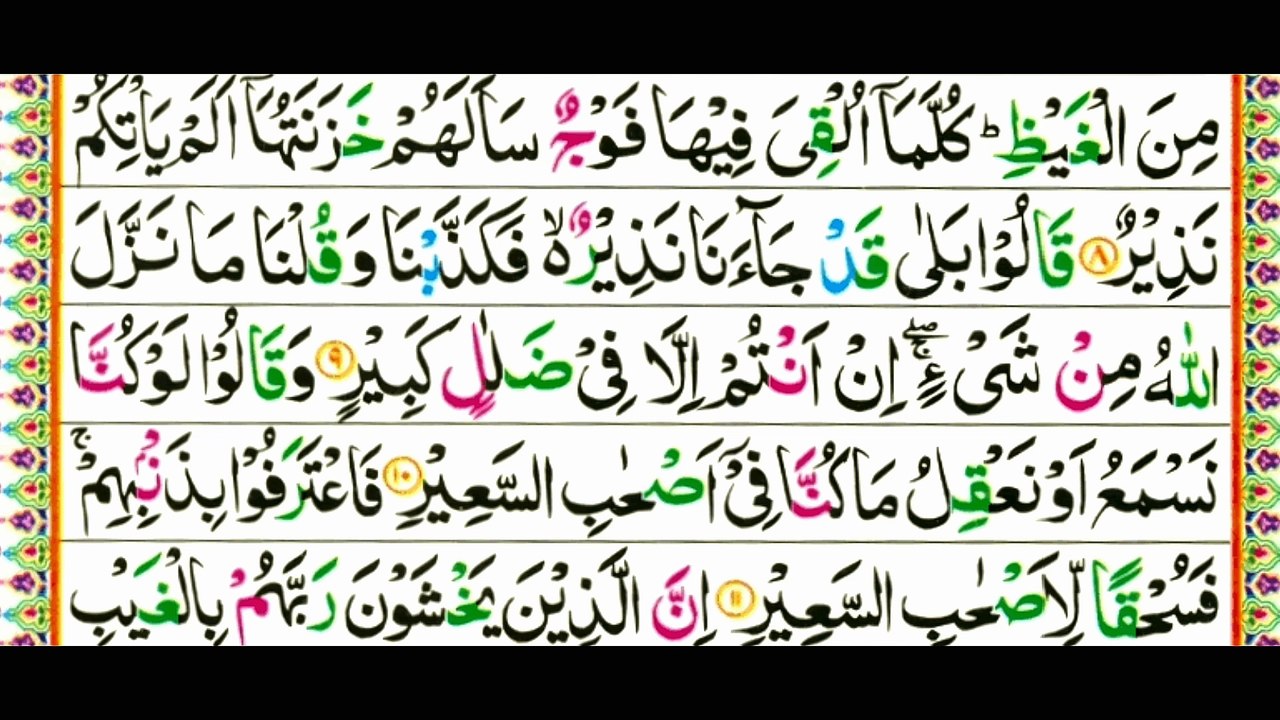 مِنَ الْغَيْظِ ؕ كُلَّمَاۤ اُلْقِیَ فِیْهَا فَوْجٌ سَاَلَهُمْ خَزَنَتُهَاۤ اَلَمْ یَاْتِكُمْ
نَذِیْرٌ ۸ قَالُوْا بَلٰی قَدْ جَآءَنَا نَذِیْرٌ ۙ۬ فَكَذَّبْنَا وَقُلْنَا مَا نَزَّلَ
اللّٰهُ مِنْ شَیْءٍ ۖۚ اِنْ اَنْتُمْ اِلَّا فِیْ ضَلٰلٍ كَبِیْرٍ ۹ وَقَالُوْا لَوْ كُنَّا
نَسْمَعُ اَوْ نَعْقِلُ مَا كُنَّا فِیْۤ اَصْحٰبِ السَّعِیْرِ ۱۰ فَاعْتَرَفُوْا بِذَنْۢبِهِمْ ۚ
فَسُحْقًا لِّاَصْحٰبِ السَّعِیْرِ ۱۱ اِنَّ الَّذِیْنَ یَخْشَوْنَ رَبَّهُمْ بِالْغَیْبِ